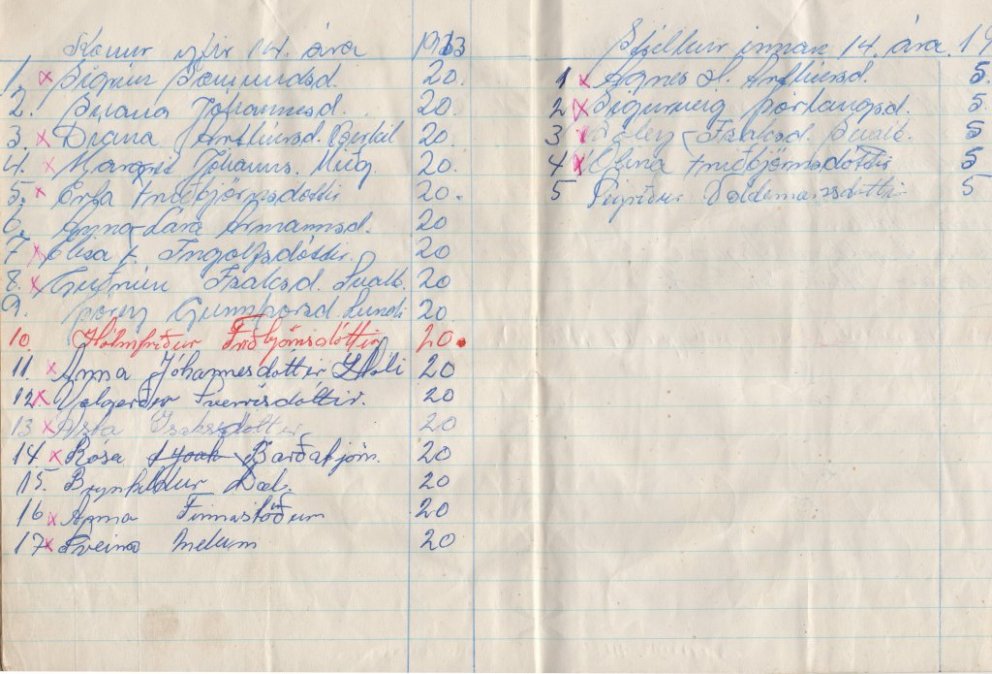 Konur yfir 14. ára 1963
1. x Sigrún Sæmundsd. 20.
2. Svana Jóhannesd. 20.
3. x Diana Arthúrsd. 20.
4. x Margrét Jóhanns. 20.
5. x Erla Friðbjörnsdóttir 20.
6. Anna Lára Ármannsd. 20
7 x Elsa Ingólfsdóttir. 20
8. x Guðrún Ísaksd. Svalb. 20
9. Þórey Gunnþórsd. Lundi 20.
10 Hólmfríður Friðbjörnsdóttir 20.
11 x Anna Jóhannesdóttir 20
12 x Valgerður Sverrisdóttir. 20
13 x Ásta Ísaksdóttir 20
14 x Rósa Barðatjörn. 20
15. Brynhildur Dal. 20
16 x Anna Finnastöðum 20
17 x Sveina Melum 20
Stúlkur innan 14. ára 19
1 x Agnes Þ. Arthúrsd. 5.
2 x Sigurveig Þorlaugsd. 5.
3 x Sóley Ísaksd. Svalb. 5
4 x Elina Friðbjörnsdóttir 5
5 Sigríður Valdemarsdóttir 5